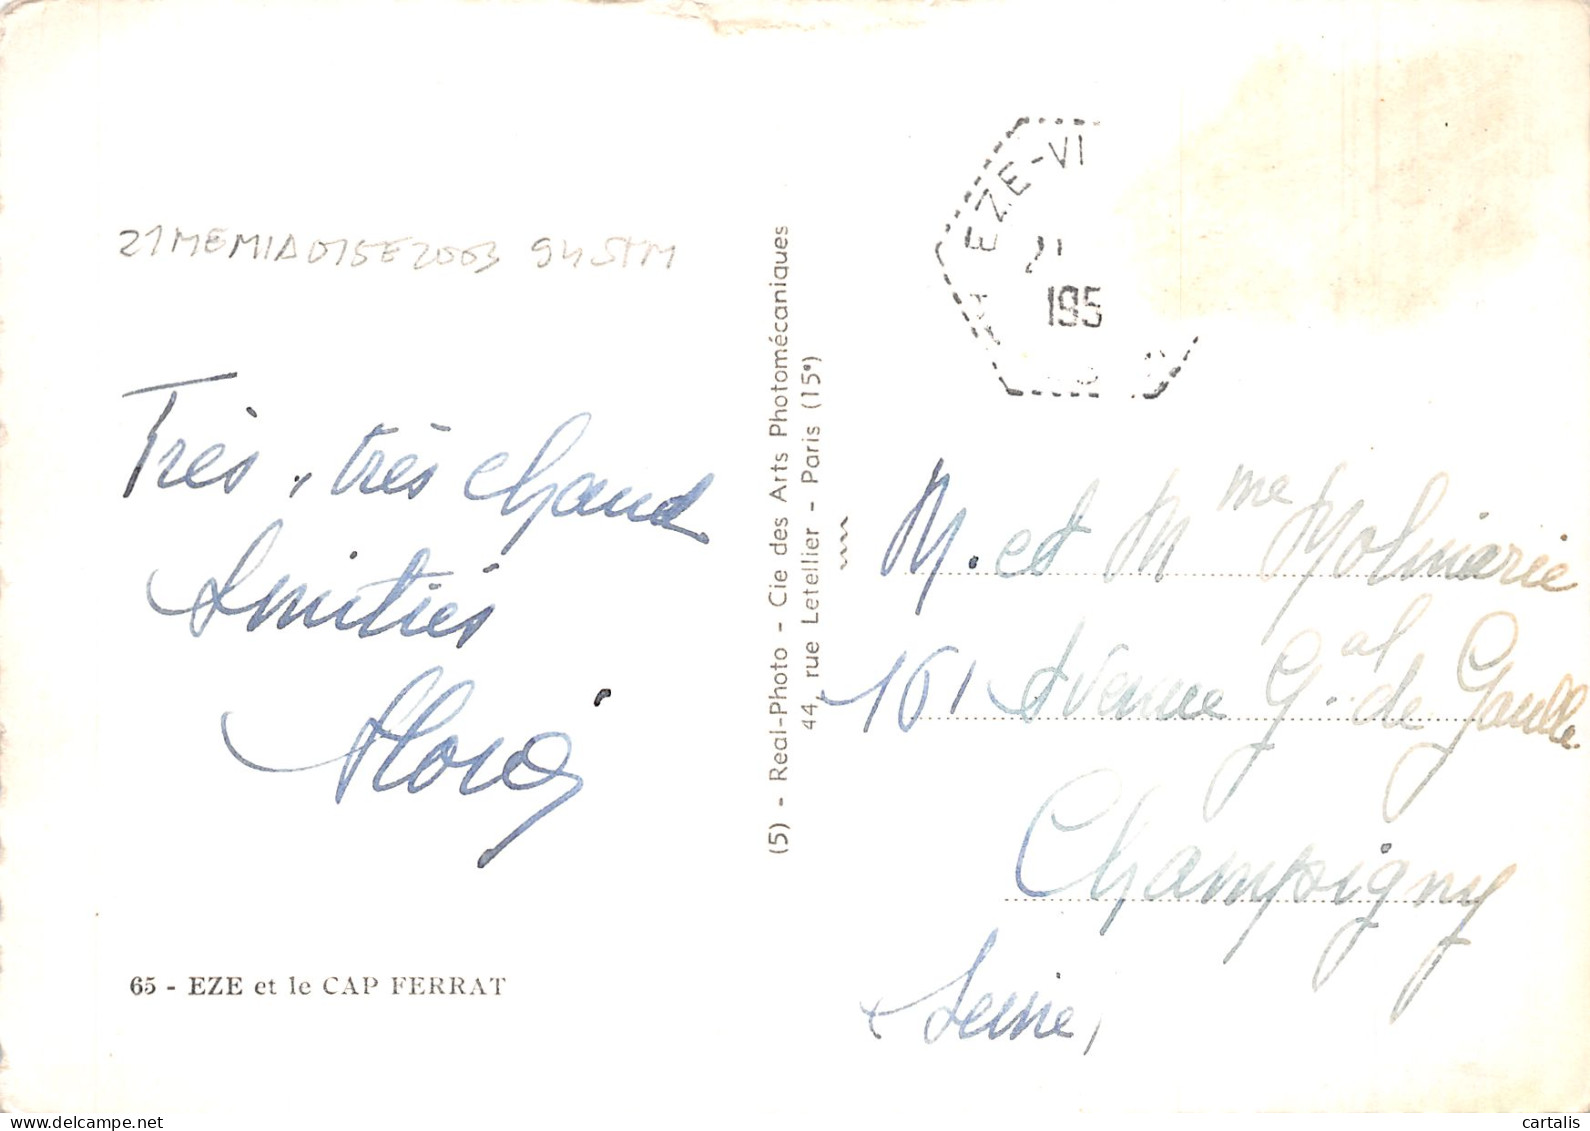 21MEMIAOISE2003 94STM
Très, très chaud
Amitiés
65 - EZE et le CAP FERRAT
(5) - Real-Photo - Cie des Arts Photomécaniques
44, rue Letellier - Paris (15e)
EZE-VI
21
195
M. et Mme Molinarie
161 Avenue Gal de Gaulle
Champigny
Seine
cartalis